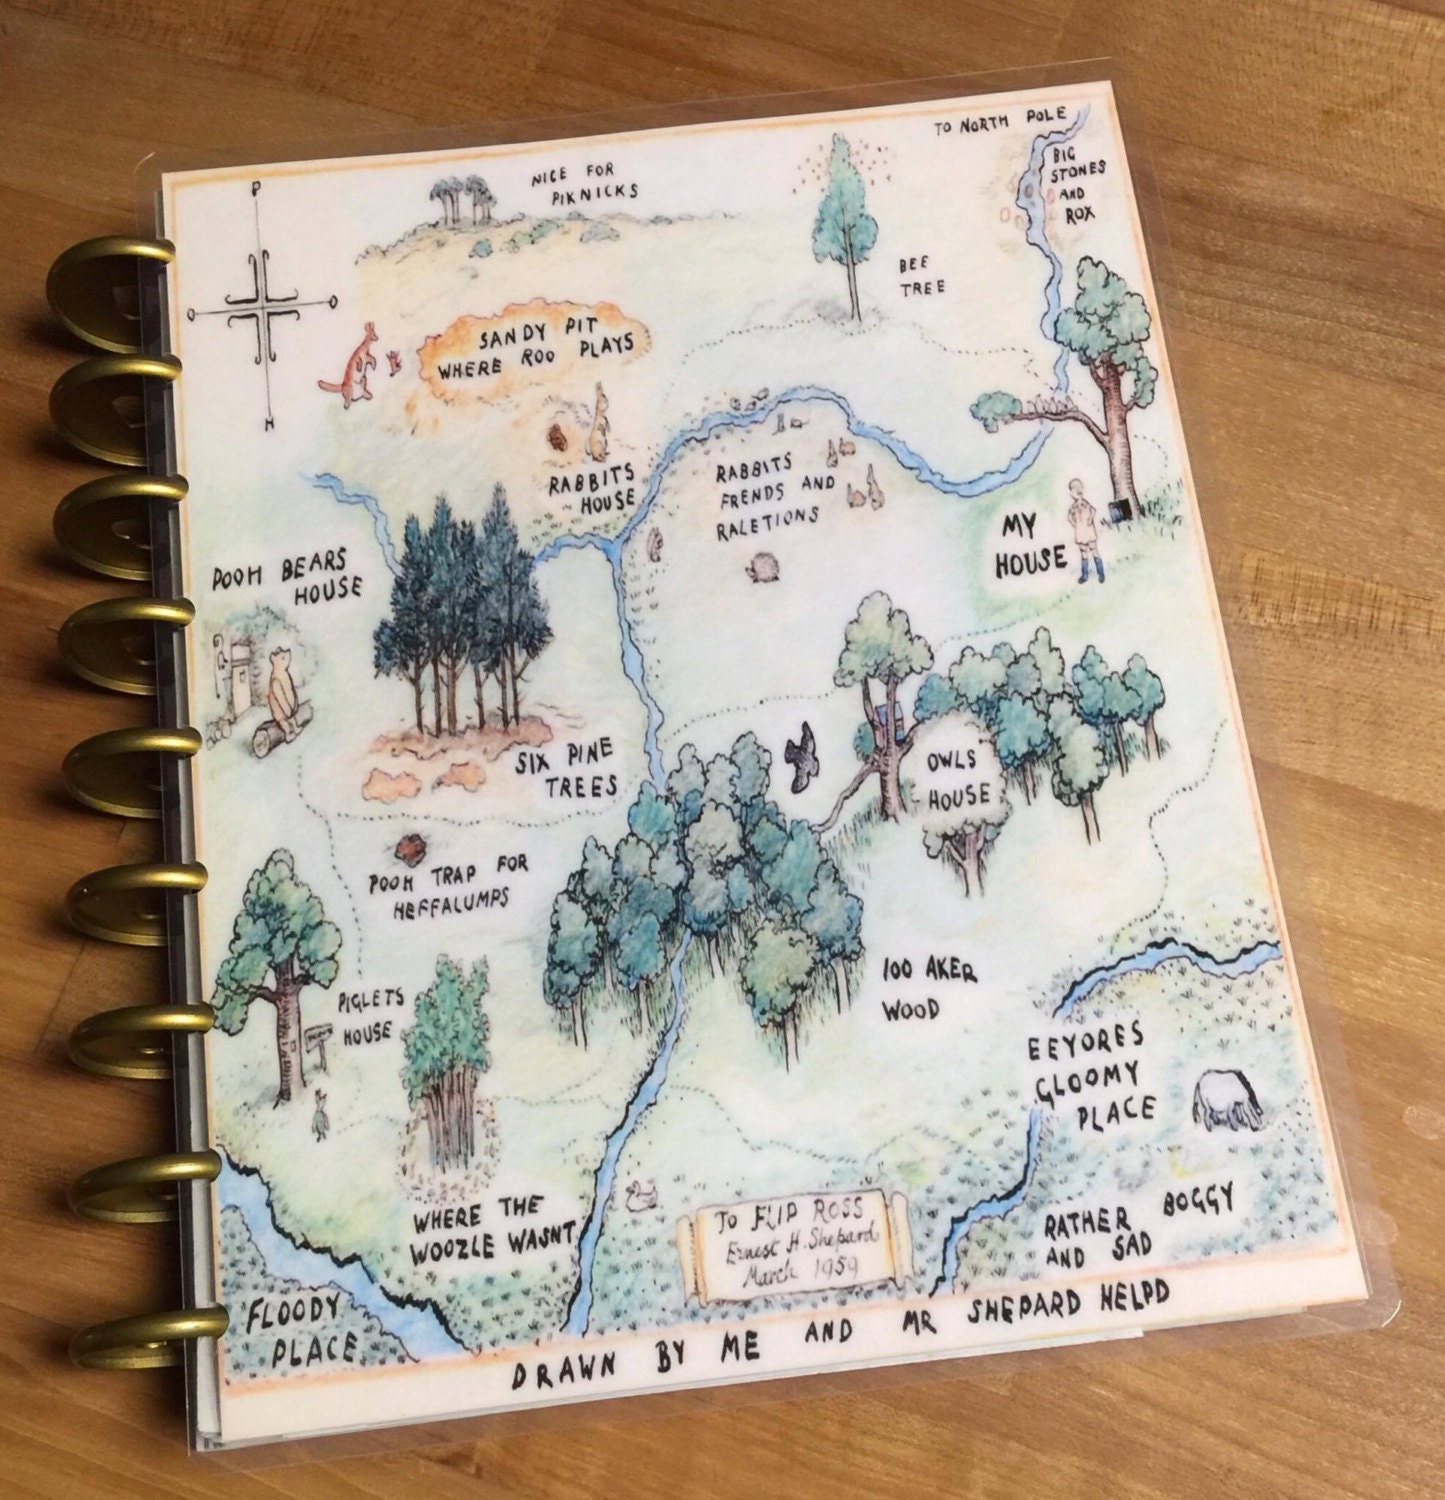 TO NORTH POLE
BIG
STONES
AND
ROX
NICE FOR
PIKNICKS
P
O
O
H
BEE
TREE
SANDY PIT
WHERE ROO PLAYS
RABBITS
HOUSE
RABBITS
FRENDS AND
RALETIONS
MY
HOUSE
POOH BEARS
HOUSE
SIX PINE
TREES
OWLS
HOUSE
POOH TRAP FOR
HEFFALUMPS
PIGLETS
HOUSE
100 AKER
WOOD
EEYORES
GLOOMY
PLACE
WHERE THE
WOOZLE WASNT
RATHER BOGGY
AND SAD
TO FLIP ROSS
Ernest H. Shepard
March 1959
FLOODY
PLACE
DRAWN BY ME AND MR SHEPARD HELPD